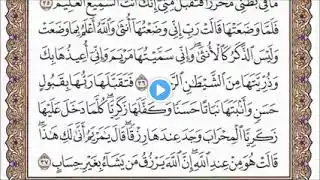 مَا فِي بَطْنِي مُحَرَّرًا فَتَقَبَّلْ مِنِّي إِنَّكَ أَنتَ السَّمِيعُ الْعَلِيمُ ٣٥
فَلَمَّا وَضَعَتْهَا قَالَتْ رَبِّ إِنِّي وَضَعْتُهَا أُنثَىٰ وَاللَّهُ أَعْلَمُ بِمَا وَضَعَتْ
وَلَيْسَ الذَّكَرُ كَالْأُنثَىٰ وَإِنِّي سَمَّيْتُهَا مَرْيَمَ وَإِنِّي أُعِيذُهَا بِكَ
وَذُرِّيَّتَهَا مِنَ الشَّيْطَٰنِ ٣٦ فَتَقَبَّلَهَا رَبُّهَا بِقَبُولٍ
حَسَنٍ وَأَنبَتَهَا نَبَاتًا حَسَنًا وَكَفَّلَهَا زَكَرِيَّا كُلَّمَا دَخَلَ عَلَيْهَا
زَكَرِيَّا الْمِحْرَابَ وَجَدَ عِندَهَا رِزْقًا قَالَ يَٰمَرْيَمُ أَنَّىٰ لَكِ هَٰذَا
قَالَتْ هُوَ مِنْ عِندِ اللَّهِ إِنَّ اللَّهَ يَرْزُقُ مَن يَشَاءُ بِغَيْرِ حِسَابٍ ٣٧